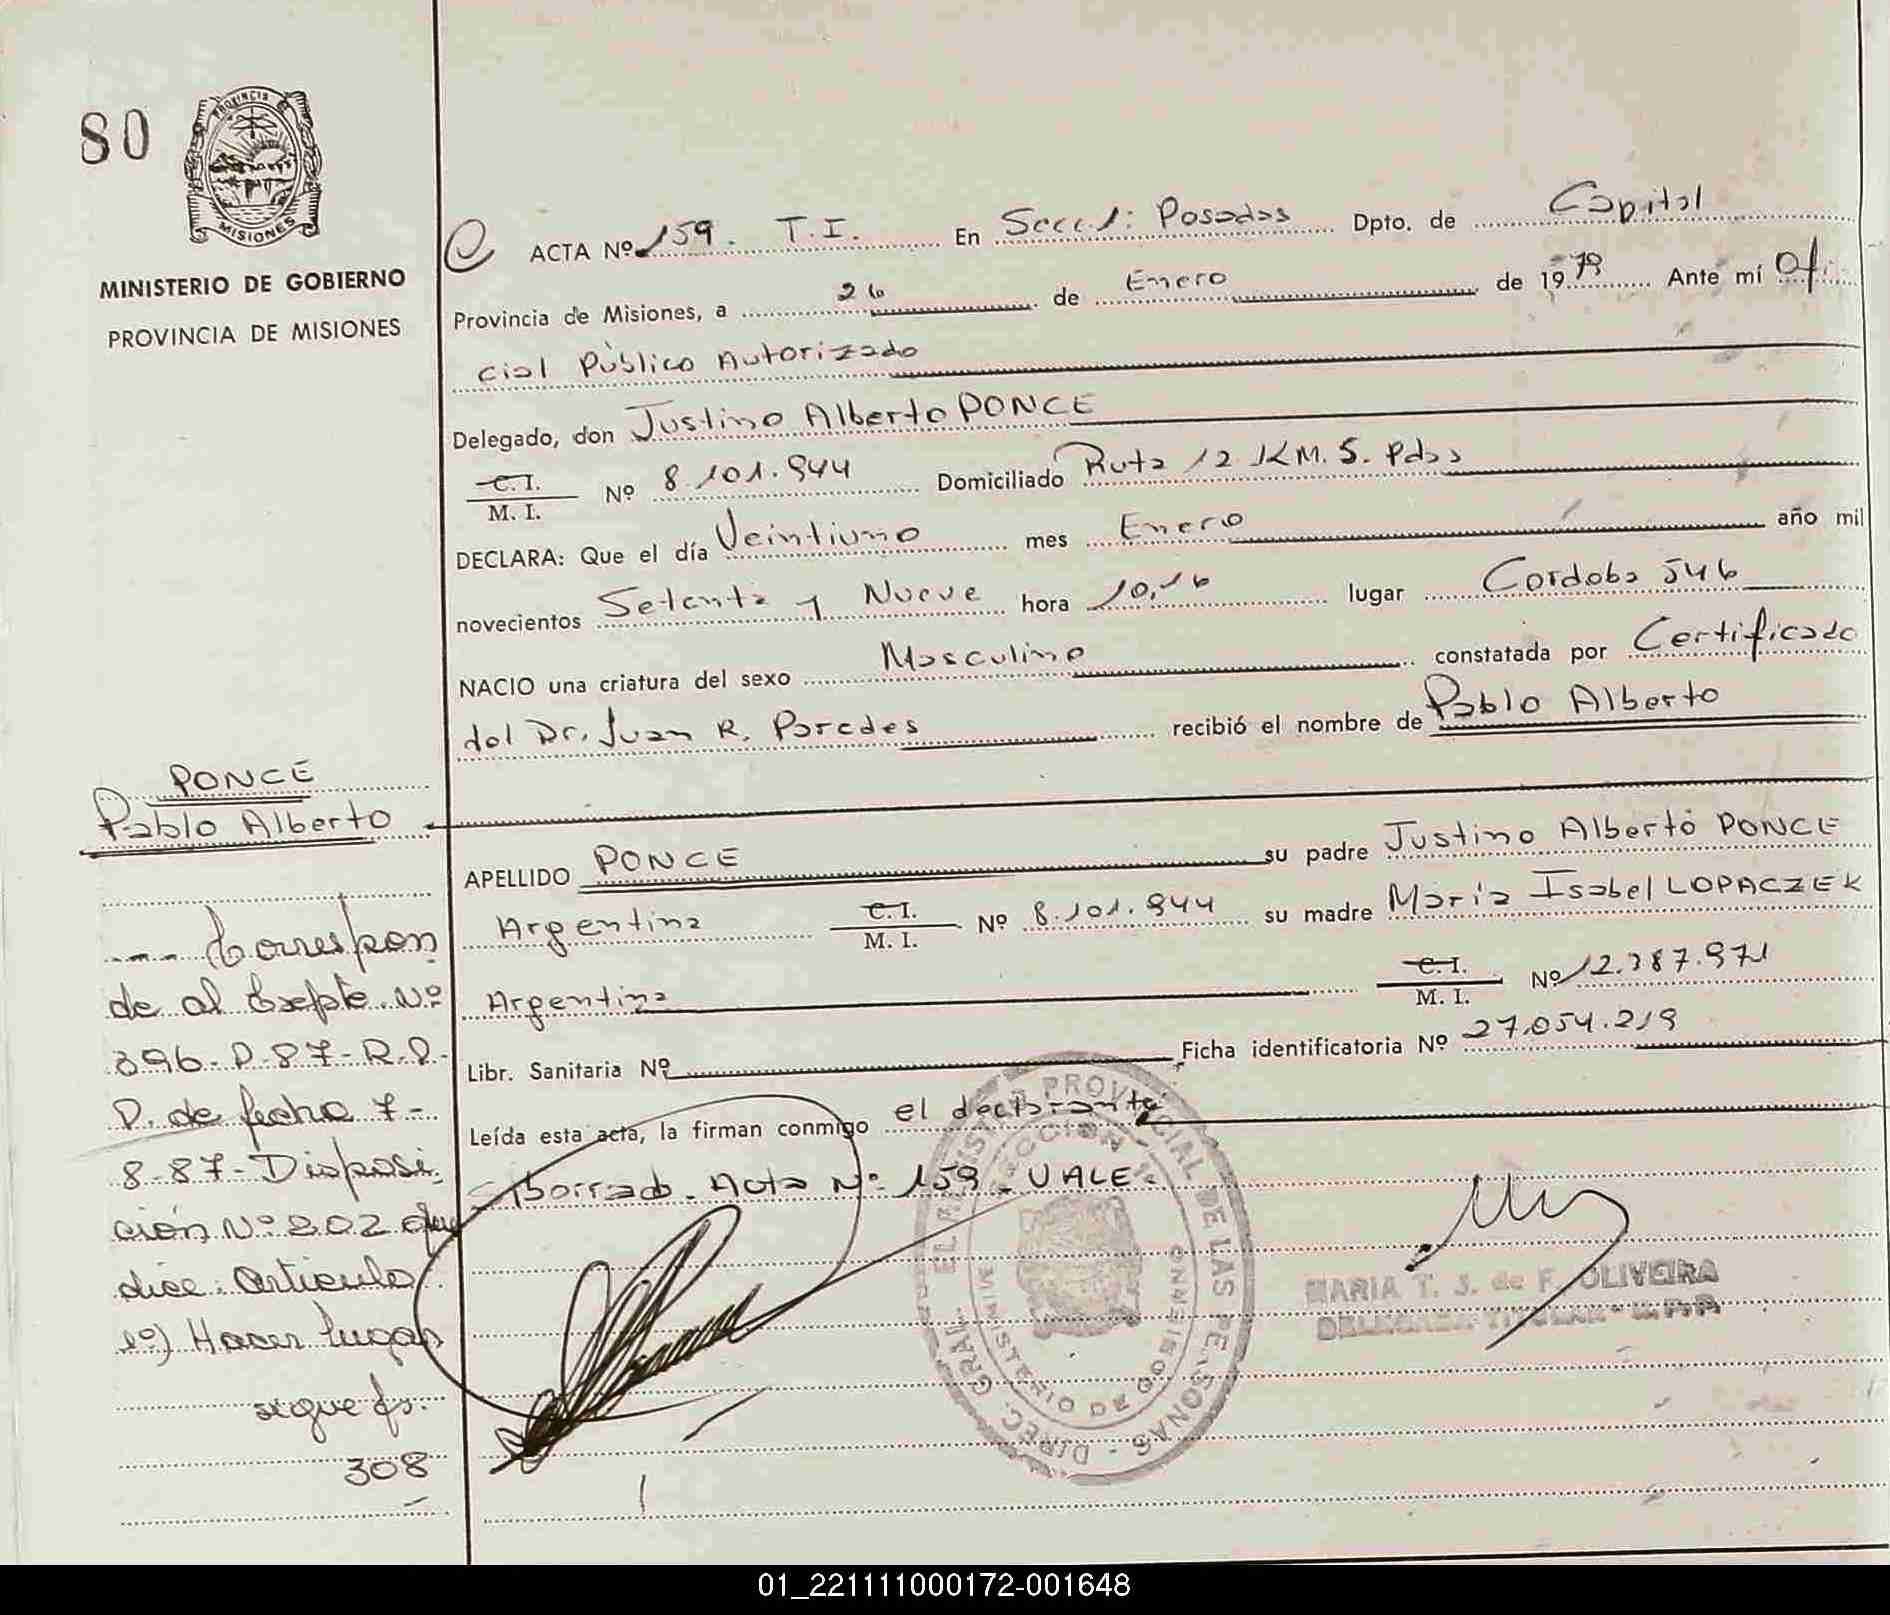 80
PROVINCIA
MISIONES
MINISTERIO DE GOBIERNO
PROVINCIA DE MISIONES
ACTA Nº 159. T.I. En Secc. 1: Posadas Dpto. de Capital
Provincia de Misiones, a 26 de Enero de 1979 Ante mí Ofi
cial Público Autorizado
Delegado, don Justino Alberto PONCE
C. I.
M. I. Nº 8.101.944 Domiciliado Ruta 12 KM. 5. Pdas
DECLARA: Que el día Veintiuno mes Enero año mil
novecientos Setenta y Nueve hora 10,16 lugar Cordoba 546
NACIO una criatura del sexo Masculino constatada por Certificado
del Dr. Juan R. Paredes recibió el nombre de Pablo Alberto
PONCE
Pablo Alberto
APELLIDO PONCE su padre Justino Alberto PONCE
Argentina C. I.
M. I. Nº 8.101.944 su madre María Isabel LOPACZEK
Argentina C. I.
M. I. Nº 12.387.971
Libr. Sanitaria Nº Ficha identificatoria Nº 27.054.219
Leída esta acta, la firman conmigo el declarante
Borrado. Acta Nº 159. VALE.
---- Correspon
de al Expte. Nº
396-P-87-R.P.
P. de fecha 7-
8-87- Disposi
ción Nº 202 que
dice: Articulo
1º) Hacer lugar
sigue fs:
308
DIREC. GRAL. EL REGISTRO PROVINCIAL DE LAS PERSONAS
SECCION 1ª
MINISTERIO DE GOBIERNO
MARIA T. J. de F. OLIVEIRA
DELEGADA TITULAR - R.P.P.
01_221111000172-001648